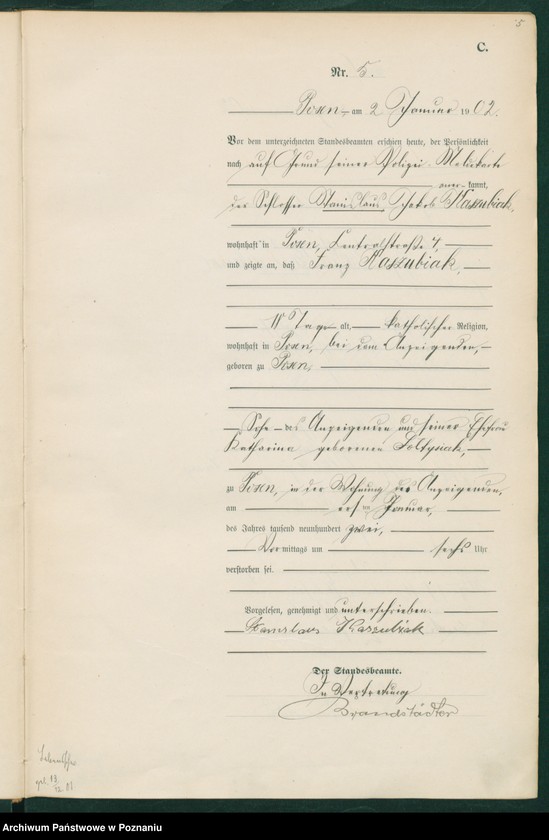 5
C.
Nr. 5.
Posen am 2 Januar 1902.
Vor dem unterzeichneten Standesbeamten erschien heute, der Persönlichkeit
nach auf Grund seiner Polizei Meldekarte
anerkannt,
der Schlosser Stanislaus, Jakob Kaszubiak,
wohnhaft in Posen, Centralstraße 7,
und zeigte an, daß Franz Kaszubiak,
Tage alt, katholischer Religion,
wohnhaft in Posen, bei dem Anzeigenden,
geboren zu Posen,
Sohn des Anzeigenden und seiner Ehefrau
Katharina geborenen Soltysiak,
zu Posen, in der Wohnung des Anzeigenden,
am ersten Januar,
des Jahres tausend neunhundert zwei,
Vormittags um sechs Uhr
verstorben sei.
Vorgelesen, genehmigt und unterschrieben.
Stanislaus Kaszubiak
Der Standesbeamte.
In Vertretung
Brandstädter
geb. 19.
12. 01
Archiwum Państwowe w Poznaniu